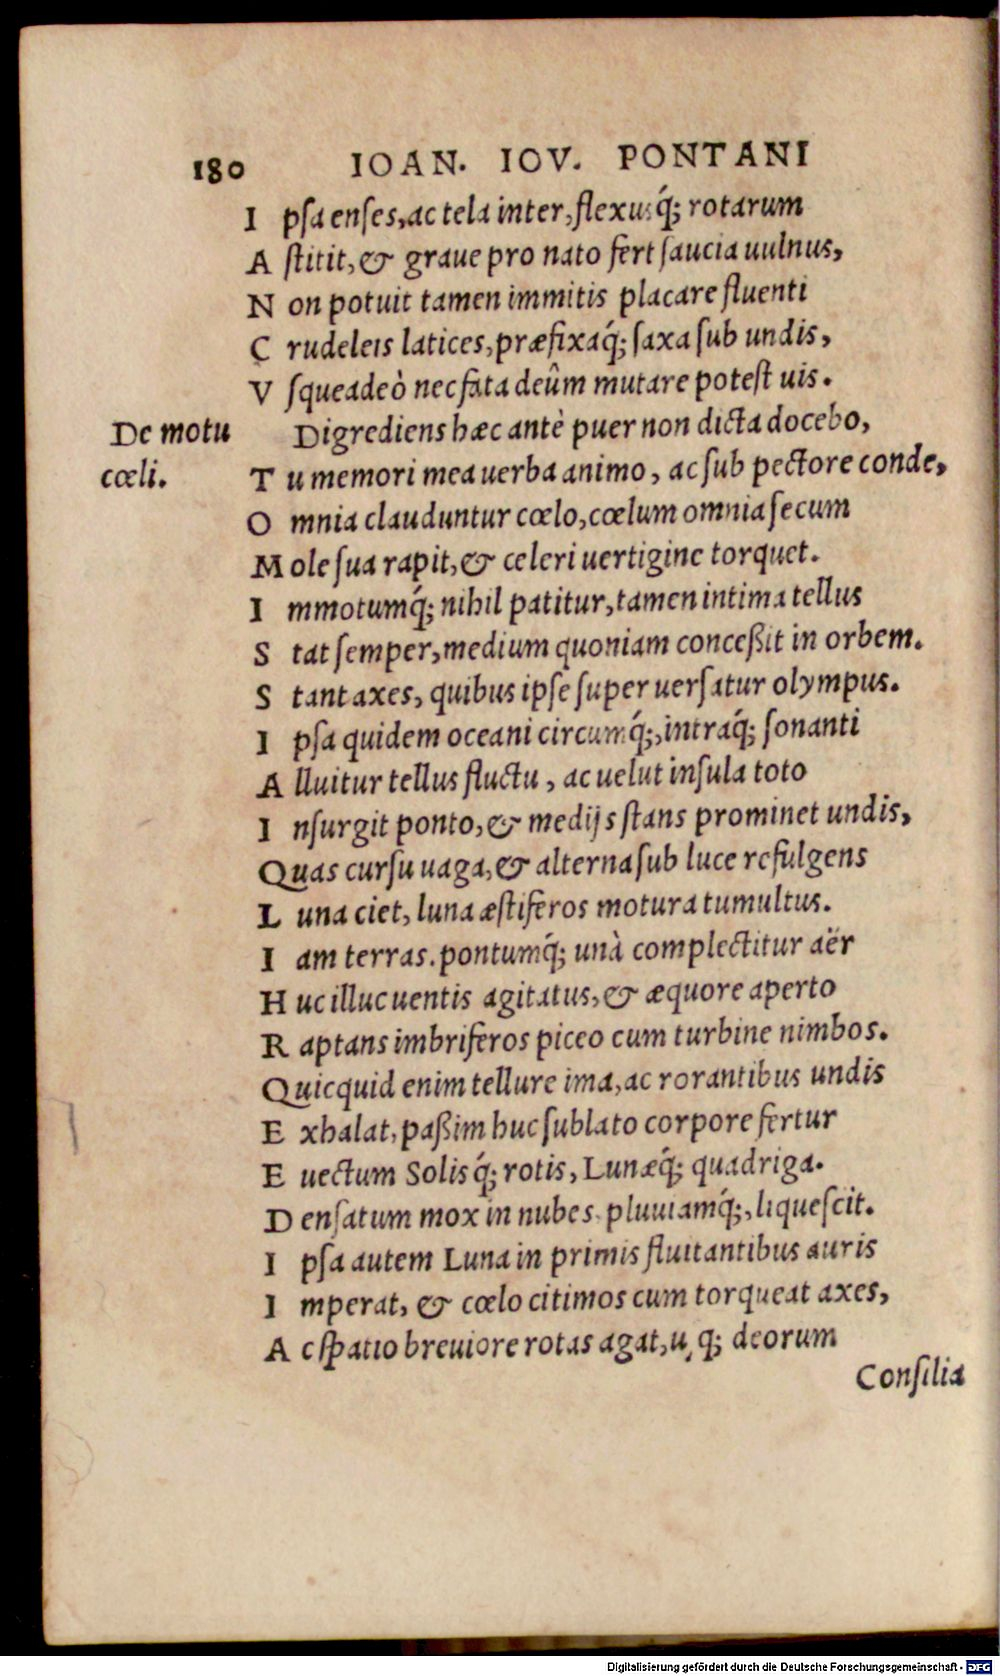 180 IOAN. IOV. PONTANI
I pſa enſes, ac tela inter, flexusq́; rotarum
A ſtitit, & graue pro nato fert ſaucia uulnus,
N on potuit tamen immitis placare fluenti
C rudeleis latices, præfixaq́; ſaxa ſub undis,
V ſqueadeò nec fata deûm mutare poteſt uis.
De motu cœli.
Digrediens hæc antè puer non dicta docebo,
T u memori mea uerba animo, ac ſub pectore conde,
O mnia clauduntur cœlo, cœlum omnia ſecum
M ole ſua rapit, & celeri uertigine torquet.
I mmotumq́; nihil patitur, tamen intima tellus
S tat ſemper, medium quoniam conceßit in orbem.
S tant axes, quibus ipſe ſuper uerſatur olympus.
I pſa quidem oceani circumq́;, intraq́; ſonanti
A lluitur tellus fluctu, ac uelut inſula toto
I nſurgit ponto, & medijs ſtans prominet undis,
Quas curſu uaga, & alterna ſub luce refulgens
L una ciet, luna æſtiferos motura tumultus.
I am terras. pontumq́; unà complectitur aër
H uc illuc uentis agitatus, & æquore aperto
R aptans imbriferos piceo cum turbine nimbos.
Quicquid enim tellure ima, ac rorantibus undis
E xhalat, paßim huc ſublato corpore fertur
E uectum Solisq́; rotis, Lunæq́; quadriga.
D enſatum mox in nubes. pluuiamq́;, liqueſcit.
I pſa autem Luna in primis fluitantibus auris
I mperat, & cœlo citimos cum torqueat axes,
A c ſpatio breuiore rotas agat, q; deorum
Conſilia
Digitalisierung gefördert durch die Deutsche Forschungsgemeinschaft - DFG